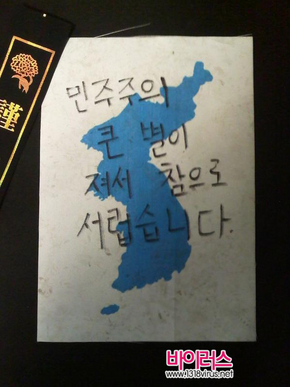 謹
민주주의
큰 별이
져서 참으로
서럽습니다.
바이러스
www.1318virus.net